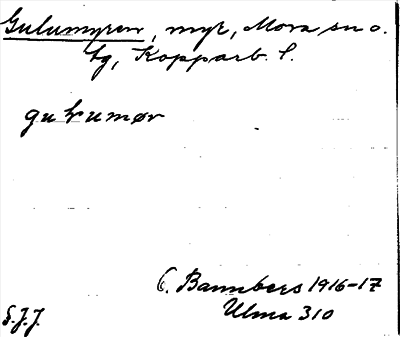 Gulumyren, myr, Mora sn o.
tg, Kopparb. l.
gulumør
C. Bannbers 1916-17
Ulma 310
S.J.J.